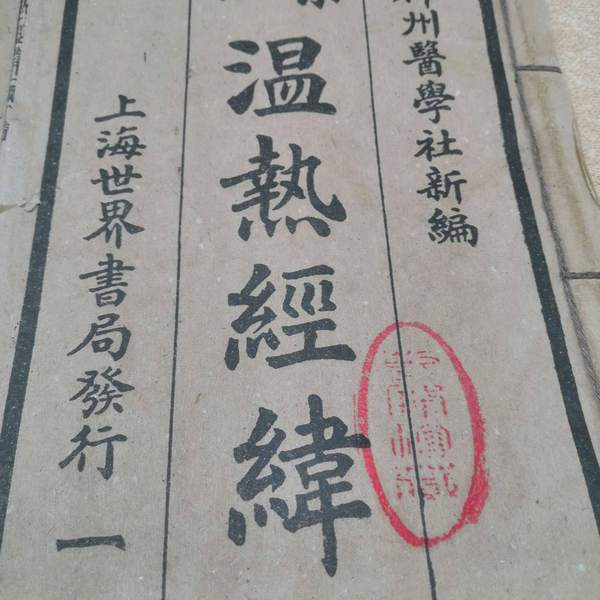 州醫學社新編
温熱經緯
上海世界書局發行 一